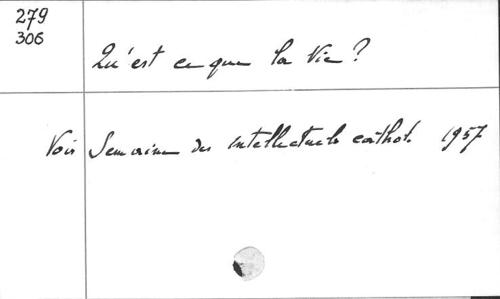 279
306
Qu'est ce que la Vie?
Voir Semaine des intellectuels cathol. 1957